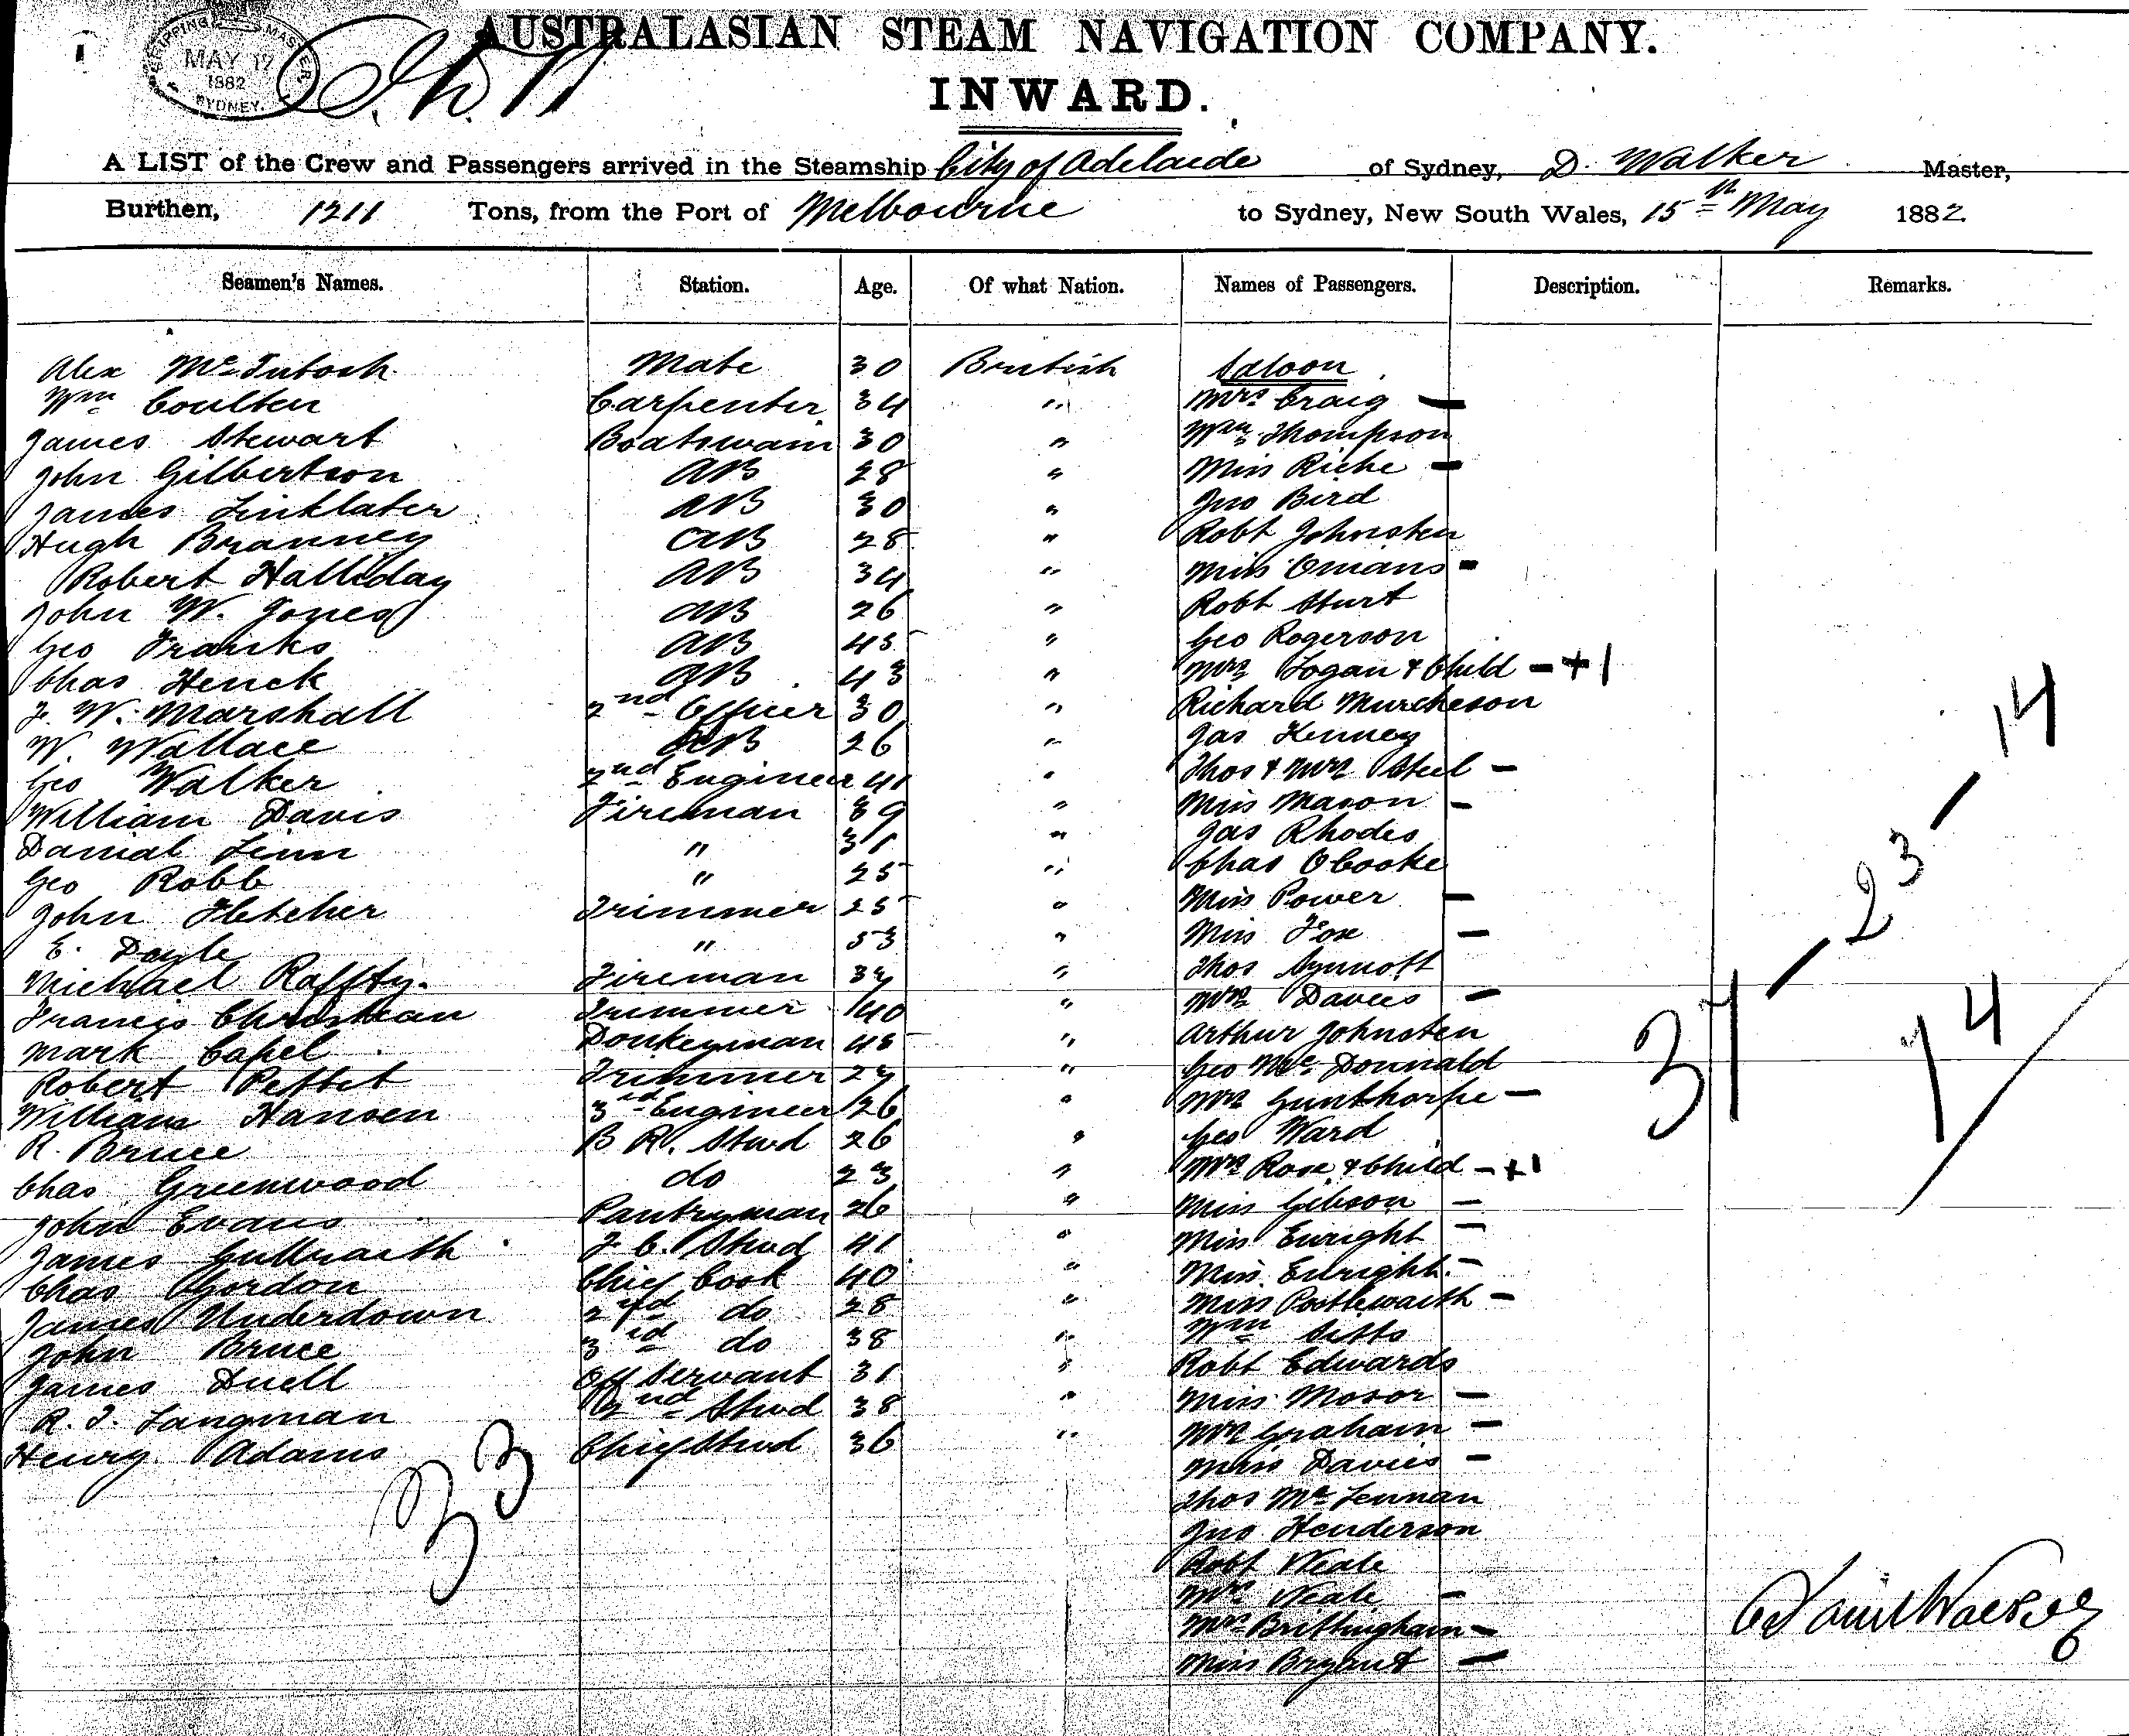 SHIPPING MASTER.
MAY 17
1882
SYDNEY.
AUSTRALASIAN STEAM NAVIGATION COMPANY.
INWARD.
A LIST of the Crew and Passengers arrived in the Steamship City of Adelaide of Sydney, D. Walker Master,
Burthen, 1211 Tons, from the Port of Melbourne to Sydney, New South Wales, 15th May 1882.
Seamen's Names. Station. Age. Of what Nation. Names of Passengers. Description. Remarks.
Alex McIntosh Mate 30 British Saloon
Wm Coulten Carpenter 34 " Mrs Craig —
James Stewart Boatswain 30 " Wm Thompson
John Gilbertson AB 28 " Miss Riche —
James Linklater AB 30 " Jno Bird
Hugh Branney AB 28 " Robt Johnsten
Robert Halliday AB 34 " Miss Omans -
John W. Jones AB 26 " Robt Sturt
Geo Franks AB 45 " Geo Rogerson
Chas Henck AB 43 " Mrs Logan & Child - + 1
J. W. Marshall 2nd Officer 30 " Richard Murcheson
W. Wallace AB 26 " Jas Kenney
Geo Walker 2nd Engineer 41 " Thos & Mrs Steel -
William Davis Fireman 39 " Miss Mason -
Danial Linn " 31 " Jas Rhodes
Geo Robb " 25 " Chas OCooke
John Fletcher Trimmer 25 " Miss Power —
E. Doyle " 53 " Miss Fox —
Michael Raffty. Fireman 34 " Thos Synnott
Francis Christian Trimmer 40 " Mrs Davies —
Mark Capel Donkeyman 45 " Arthur Johnsten
Robert Pettet Trimmer 24 " Geo McDonnald
William Hansen 3rd Engineer 26 " Mrs Gunthorpe —
R. Bruce B. R. Stwd 26 " Geo Ward
Chas Greenwood do 23 " Mrs Rose & Child - + 1
John Evans Pantryman 26 " Miss Gibson —
James Gullraith F. C. Stwd 41 " Miss Enright —
Chas Gordon Chief Cook 40 " Miss Enright -
James Underdown 2nd do 28 " Miss Postlewaith -
John Bruce 3rd do 38 " Wm Sitts
James Duell Off Servant 31 " Robt Edwards
R. J. Langman 2nd Stwd 38 " Miss Mosor —
Henry Adams Chief Stwd 36 " Mrs Graham —
Miss Davies -
Thos McLennan
Jno Henderson
Robt Neale
Mrs Neale —
Mrs Brittingham -
Miss Bryant —
33
37 — 23 — 14
74